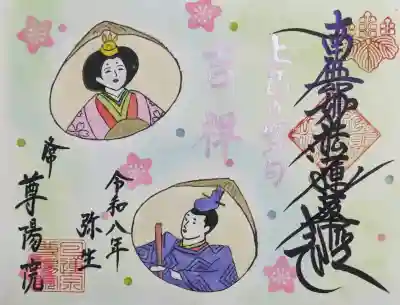 南無妙法蓮華経
上巳の節句
吉祥
令和八年
弥生
尊陽院